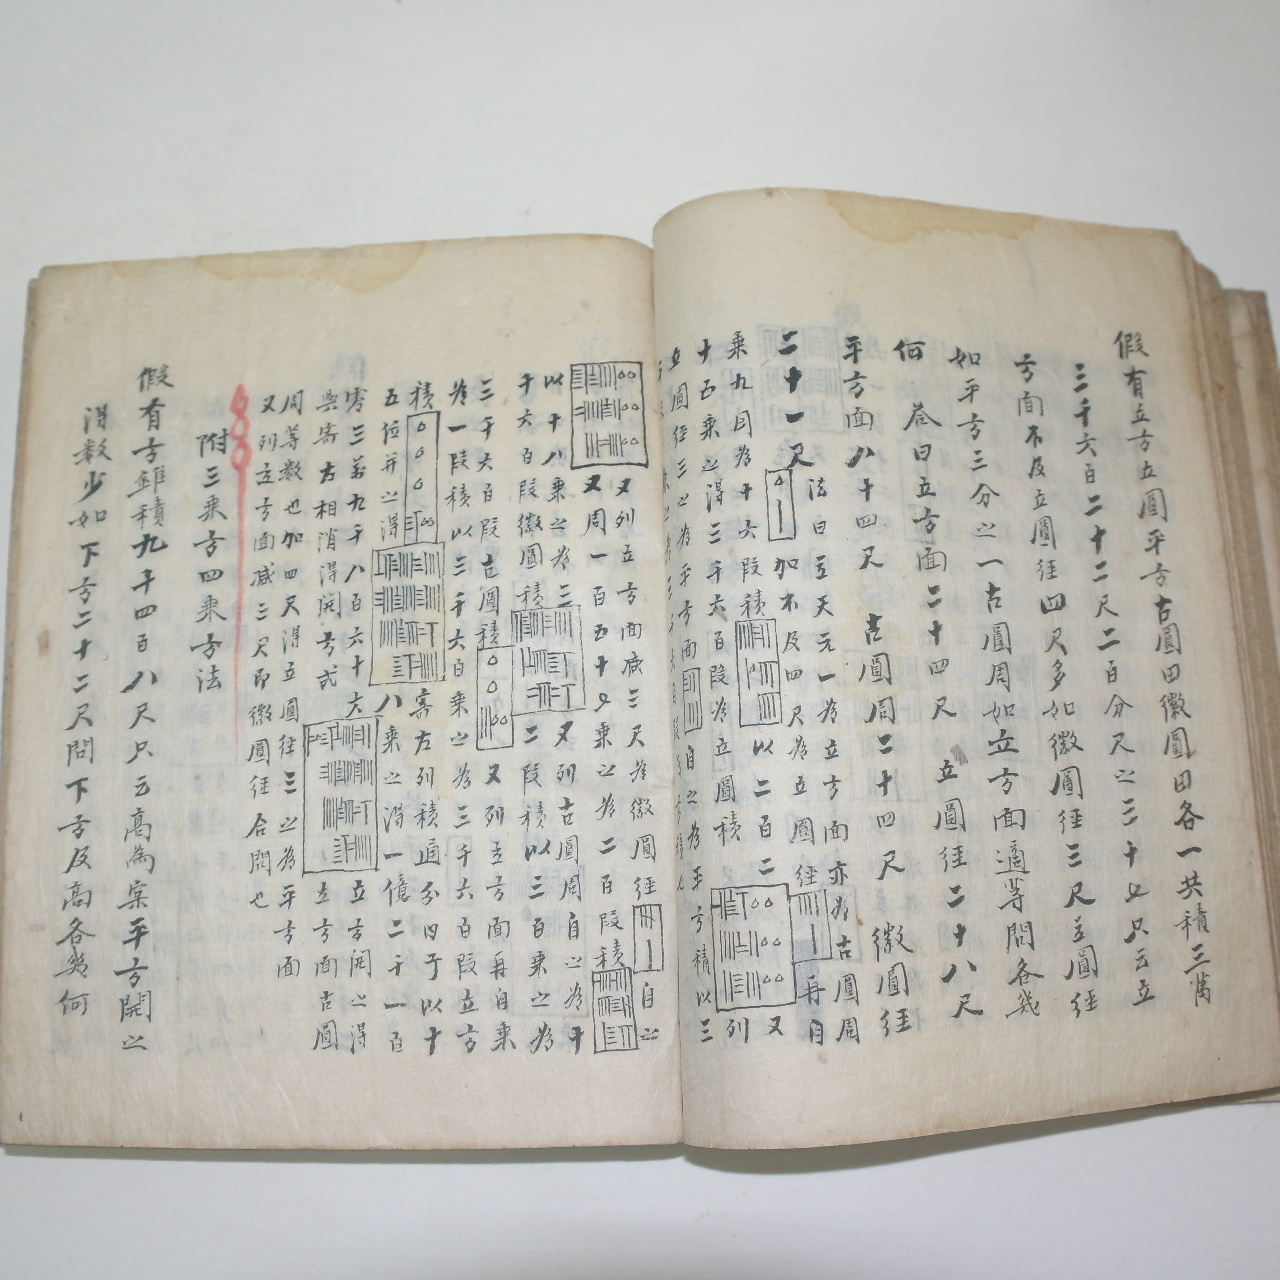 假有立方立圓平方古圓田徽圓田各一共積三萬
三千六百二十二尺二百分尺之三十七只云立
方面不及立圓徑四尺多如徽圓徑三尺立圓徑
如平方三分之一古圓周如立方面適等問各幾
何 答曰立方面二十四尺 立圓徑二十八尺
平方面八十四尺 古圓周二十四尺 徽圓徑
二十一尺
法曰立天元一為立方面亦為古圓周
加不及四尺為立圓徑 再自
乘九因為十六段積 以二百二
十五乘之得三千六百段為立圓積 又列
立圓徑三之為平方面 自之為平方積以三
又列立方面減三尺為徽圓徑 自之
又周一百五十七乘之為二百段積
以十八乘之為三千六百段徽圓積 又列古圓周自之為十
二段積以三百乘之為
三千六百段古圓積 又列立方面再自乘
為一段積以三千六百乘之為三千六百段立方
積 寄左列積通分內子以十
五位并之得 八乘之得一億二千一百
零三萬九千八百六十六 立方開之得
與寄左相消得開方式 立方面古圓
周等數也加四尺得立圓徑三之為平方面
又列立方面減三尺即徽圓徑合問也
附三乘方四乘方法
假有方錐積九千四百八尺只云高為實平方開之
得數少如下方二十二尺問下方及高各幾何